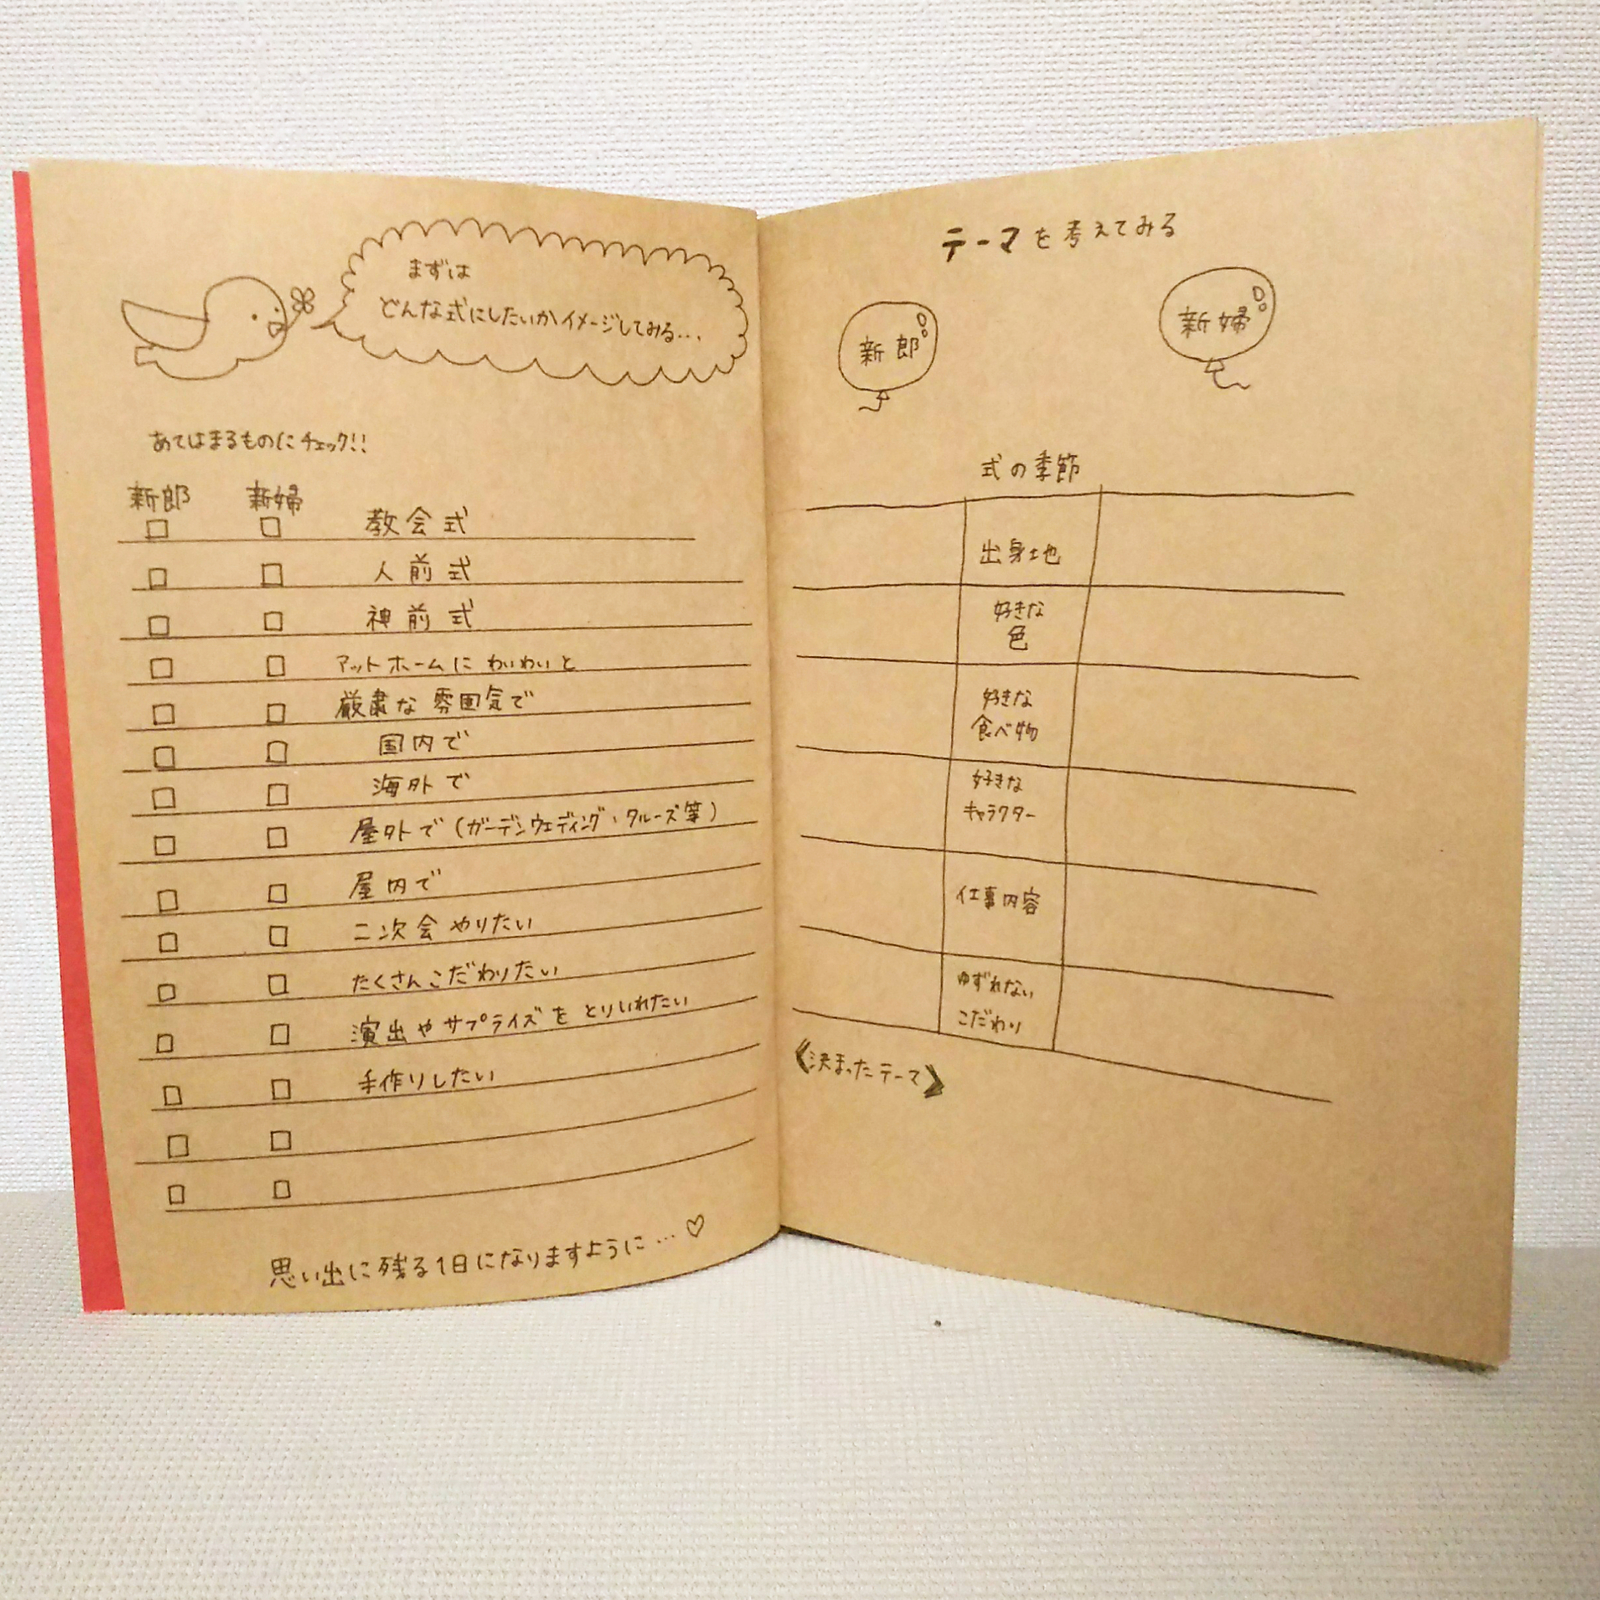 まずは
どんな式にしたいかイメージしてみる...
あてはまるものにチェック!!
新郎 新婦
教会式
人前式
神前式
アットホームに わいわいと
厳粛な 雰囲気で
国内で
海外で
屋外で(ガーデンウェディング、クルーズ等)
屋内で
二次会やりたい
たくさんこだわりたい
演出やサプライズを とりいれたい
手作りしたい
思い出に残る1日になりますように...♡
テーマを考えてみる
新郎
新婦
式の季節
出身地
好きな
色
好きな
食べ物
好きな
キャラクター
仕事内容
ゆずれない
こだわり
《決まったテーマ》